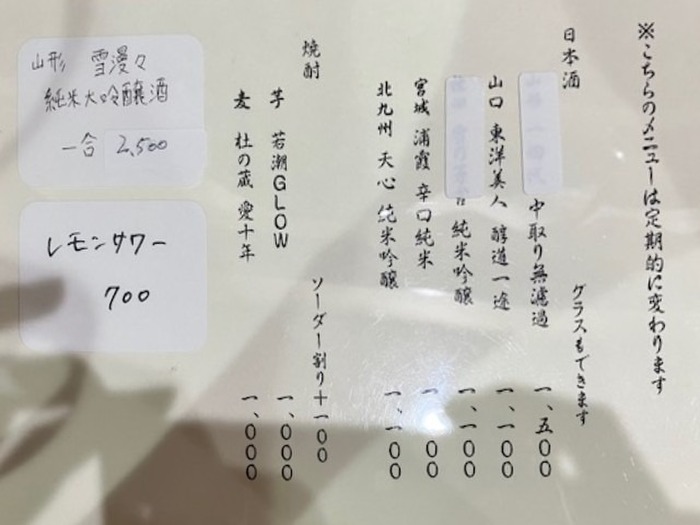 ※こちらのメニューは定期的に変わります
日本酒 グラスもできます
中取り無濾過 一、五〇〇
山口 東洋美人 醇道一途 一、一〇〇
純米吟醸 一、一〇〇
宮城 浦霞 辛口純米 〇〇
北九州 天心 純米吟醸 一、一〇〇
焼酎 ソーダー割り+一〇〇
芋 若潮GLOW 一、〇〇〇
麦 杜の蔵 愛十年 一、〇〇〇
山形 雪漫々
純米大吟醸酒
一合 2,500
レモンサワー
700